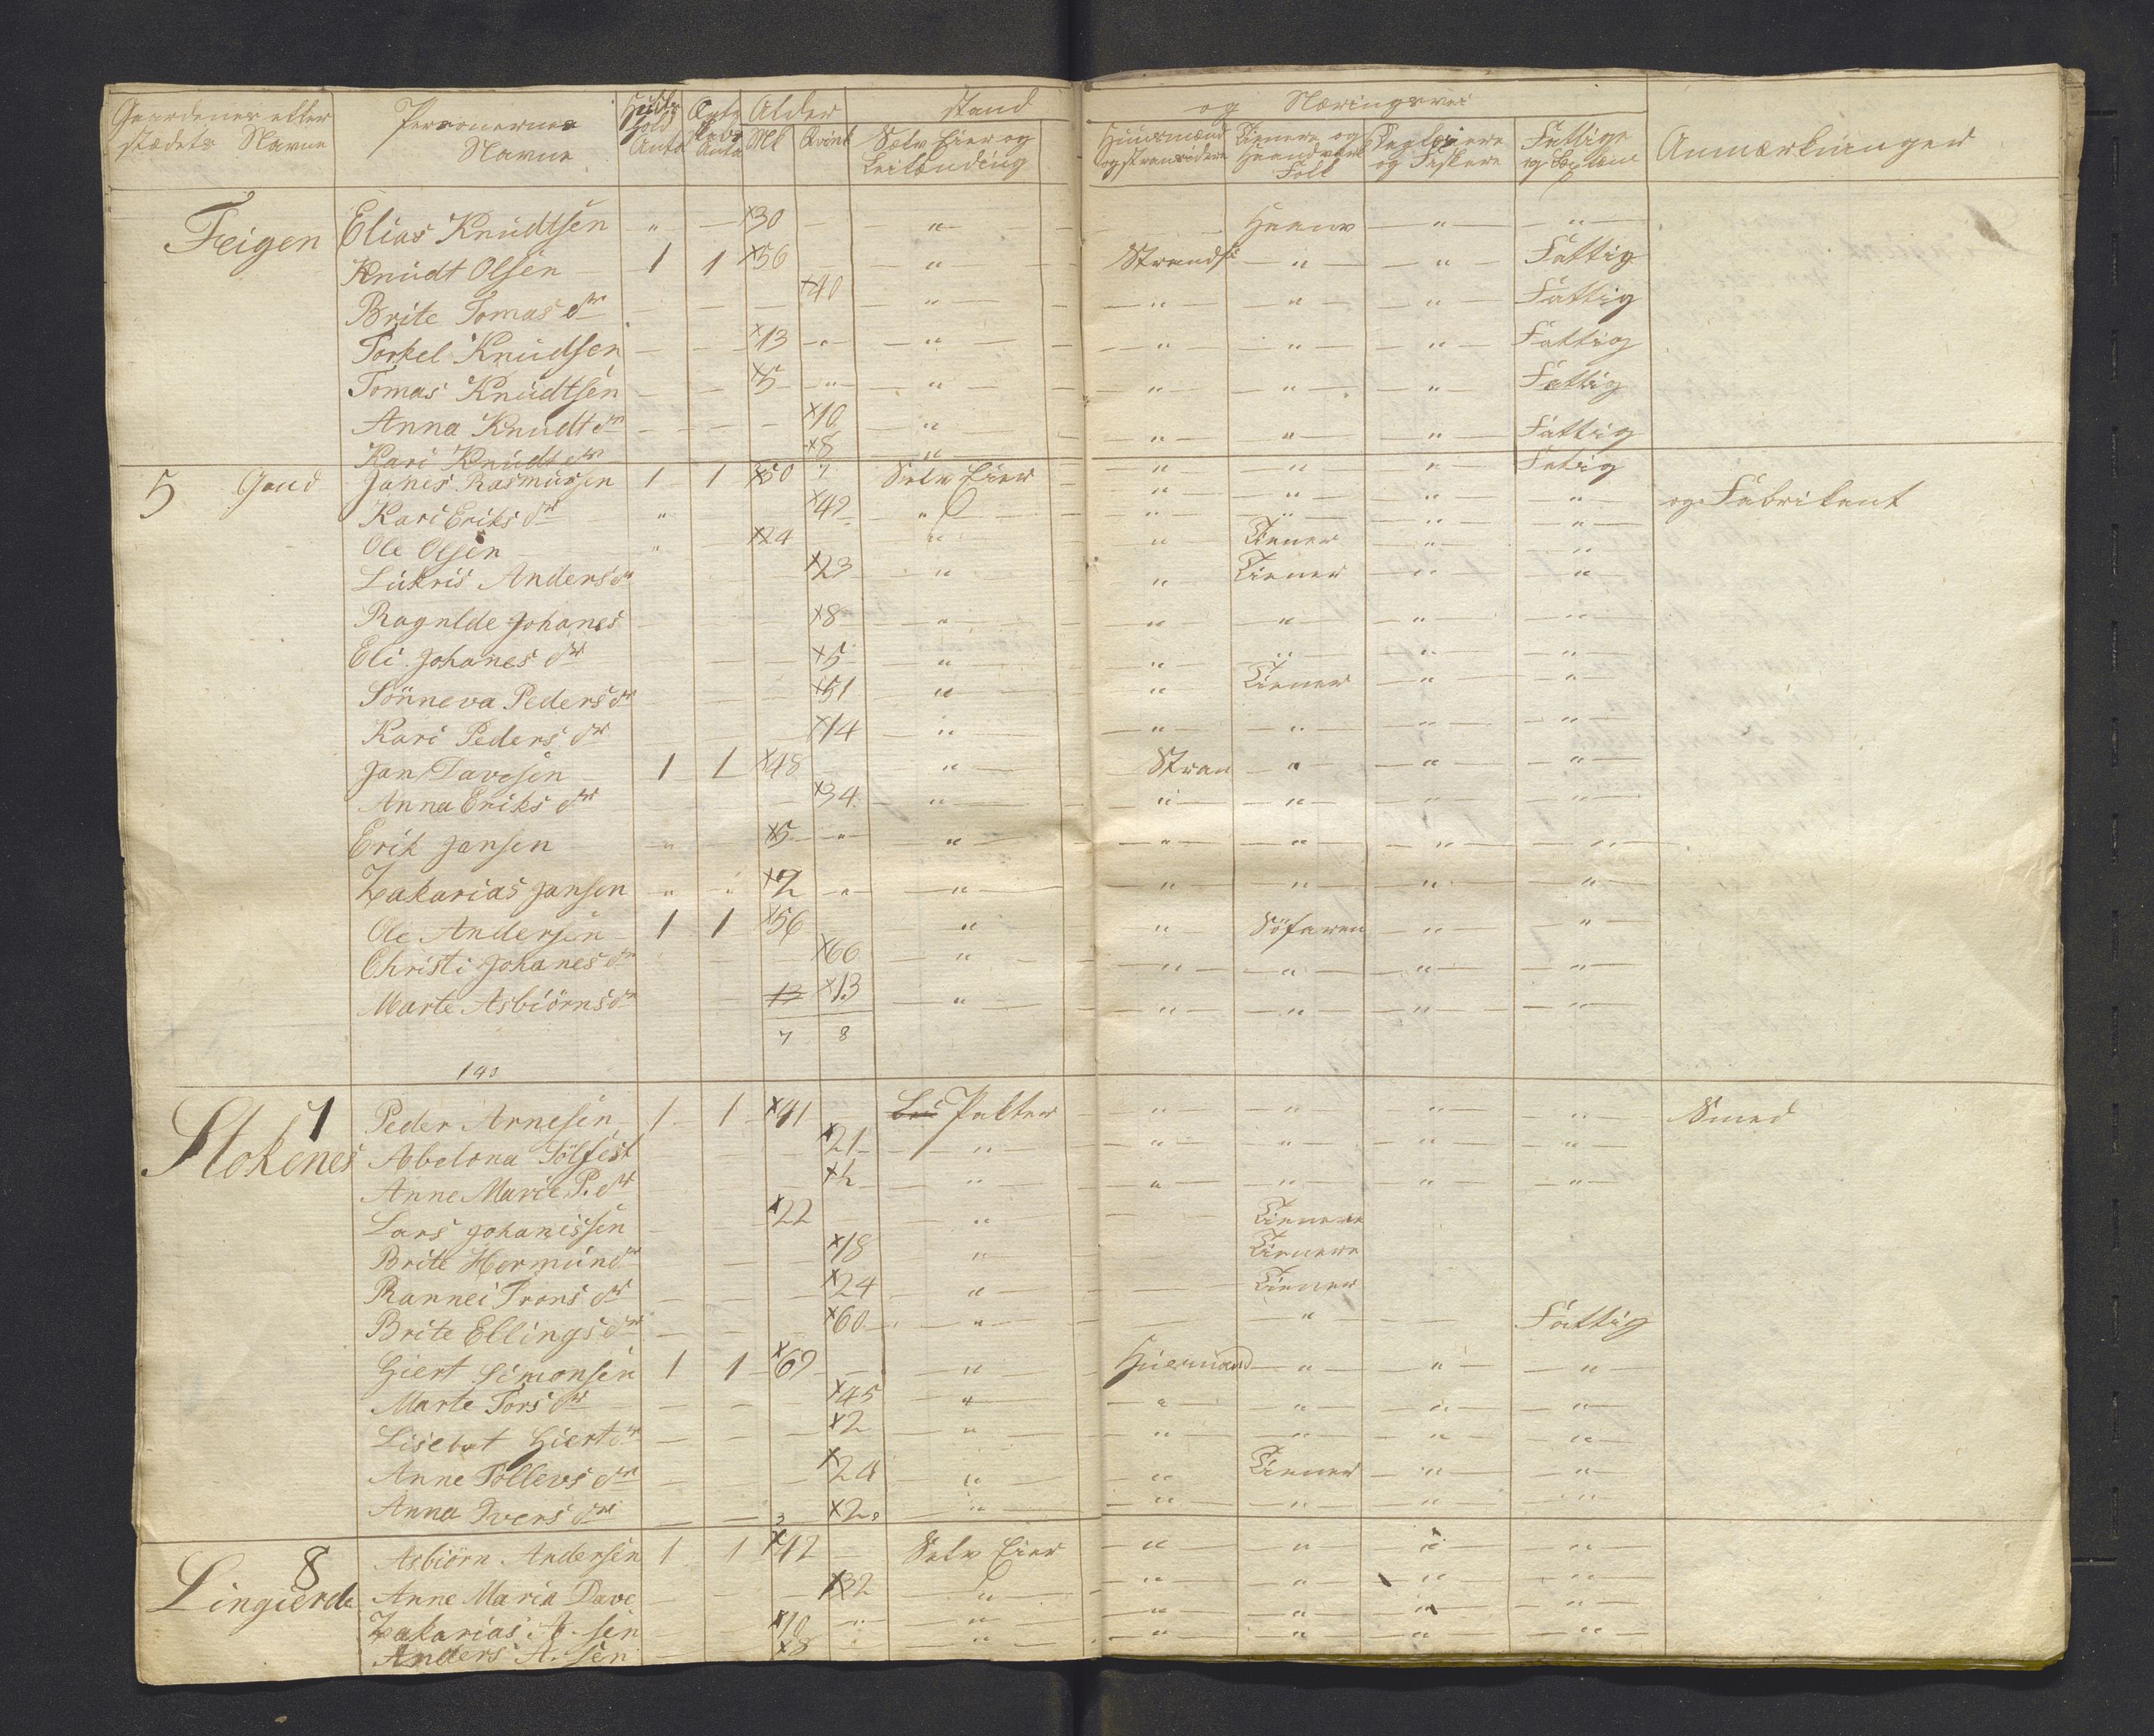 Gaardenes eller stædets Navne | Personernes Navne | Huusholds Antal | Ægte Pars Antal | Alder Mk | Qvink | stand Selv Eier og Leilænding | og Næringsvei Huusmænd og strandsidere | Tienere og Haandværk Folk | og Fiskere | Fattige | Anmærkninger
Feigen | Elias Knudtsen | " | — | x30 | — | " | — | | " | "
Knudt Olsen | 1 | 1 | x56 | — | " | Strands | " | " | Fattig
Brite Tomas dr | — | — | — | x40 | " | " | " | " | Fattig
Torkel Knudsen | — | — | x13 | " | " | " | " | " | Fattig
Tomas Knudtsen | — | — | x5 | " | " | " | " | " | Fattig
Anna Knudt dr | — | — | — | x10 | " | " | " | " | Fattig
Kari Knudt dr | | | | x8 | " | " | " | " | Fatig
5 Gaud | Johnes Rasmusen | 1 | 1 | x50 | | Selv Eier | " | " | " | " | og Fabrikent
Kari Eriks dr | " | | | x42 | " | " | " | " | "
Ole Olsen | " | — | x24 | | " | " | Tiener | " | "
Lukris Anders dr | | | | x23 | " | " | Tiener | " | "
Ragnlde Johanes | | | | x8 | " | " | " | " | "
Eli Johanes dr | — | — | — | x5 | " | " | " | " | "
Sönneva Peders dr | | | — | x51 | " | " | Tiener | " | "
Kari Peders dr | | | — | x14 | " | " | " | " | "
Jan Davesen | 1 | 1 | x48 | | " | Stran | " | " | "
Anna Eriks dr | | | — | x34 | " | " | " | " | "
Erik Jansen | " | | x5 | " | " | " | " | " | "
Zakarias Jansen | " | " | x2 | " | " | " | " | " | "
Ole Andersen | 1 | 1 | x56 | | " | " | Söfaren | " | "
Christi Johanes dr | | — | — | x66 | " | " | " | " | "
Marte Asbiörns dr | | — | 13 | x13 | " | " | " | " | "
7 | 8
Stokenes 7 | Peder Arnesen | 1 | 1 | x41 | | Lei Pakter | " | " | " | " | Smed
Abelona Sölfest | | — | — | x21 | " | " | " | " | "
Anne Marie P. dr | | | — | x½ | " | " | " | " | "
Lars Johanissen | — | — | x22 | — | " | — | Tienere
Brite Hermun dr | | — | — | x18 | " | — | Tienere
Rannei Trons dr | — | — | — | x24 | " | — | Tiener
Brite Ellings dr | — | — | — | x60 | " | — | " | — | Fattig
Giert Simonsen | 1 | 1 | x69 | — | " | Huesmand | " | " | "
Marte Tors dr | — | — | | x45 | " | " | " | " | "
Lisebet Giert dr | — | — | — | x2 | " | " | " | " | "
Anne Tollevs dr | — | | — | x24 | " | " | Tiener | " | "
Anna Ivers dr | — | — | 3 | x2 | " | " | " | " | "
Lingierde 8 | Asbiörn Andersen | 1 | 1 | x42 | — | Selv Eier | " | " | " | "
Anne Maria Dave | — | — | — | x32 | " | " | " | " | "
Zakarias A. sen | | | x10 | " | " | " | " | " | "
Anders A. sen | — | | x8 | | " | " | " | " | "